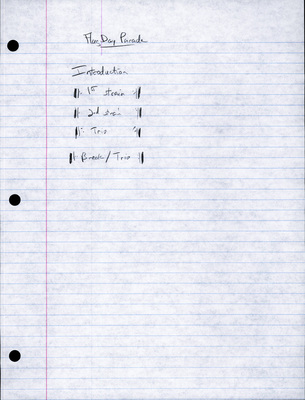 Flag Day Parade
Introduction
||: 1st strain :||
||: 2nd strain :||
||: Trio :||
||: Break / Trio :||